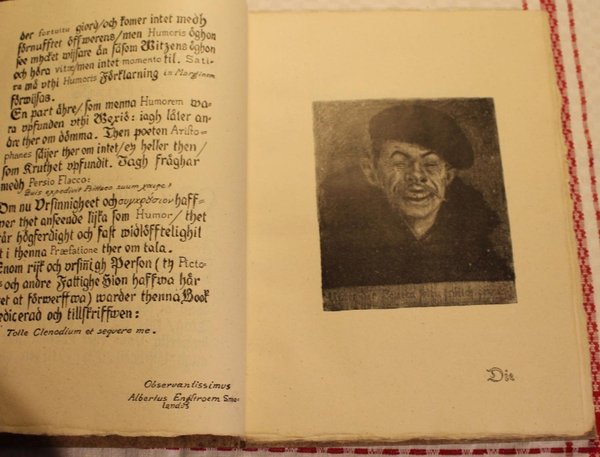 der fortuitu giord/och komer intet medh
förnuffret öffwerens/men Humoris öghon
see mycket wijsare än såsom Witzens öghon
och höra vitæ/men intet momento til. Sati-
ra må vthi Humoris Förklarning in Marginem
förwijsas.
En part ähre/som menna Humorem wa-
ra vpfunden vthi Wexiö: iagh låter an-
dre ther om dömma. Then poeten Aristo-
phanes säijer ther om intet/ey heller then/
som Kruthet vpfundit. Jagh fråghar
medh Persio Flacco:
Quis expedivit Psittaco suum χαῖρε?
Om nu Vrsinnigheet och haff-
ner thet anseende lijka som Humor/thet
är högferdight och fast widlöfftelighit
t i thenna Præfatione ther om tala.
Enom rijk och vrsinnigh Person (ty Picto-
och andre Fattighe Hion haffwa här
et at förwerffwa) warder thenna Book
edicerad och tillskriffwen:
Tolle Clenodium et sequere me.
Observantissimus
Albertus Engstroem Smo-
landus.